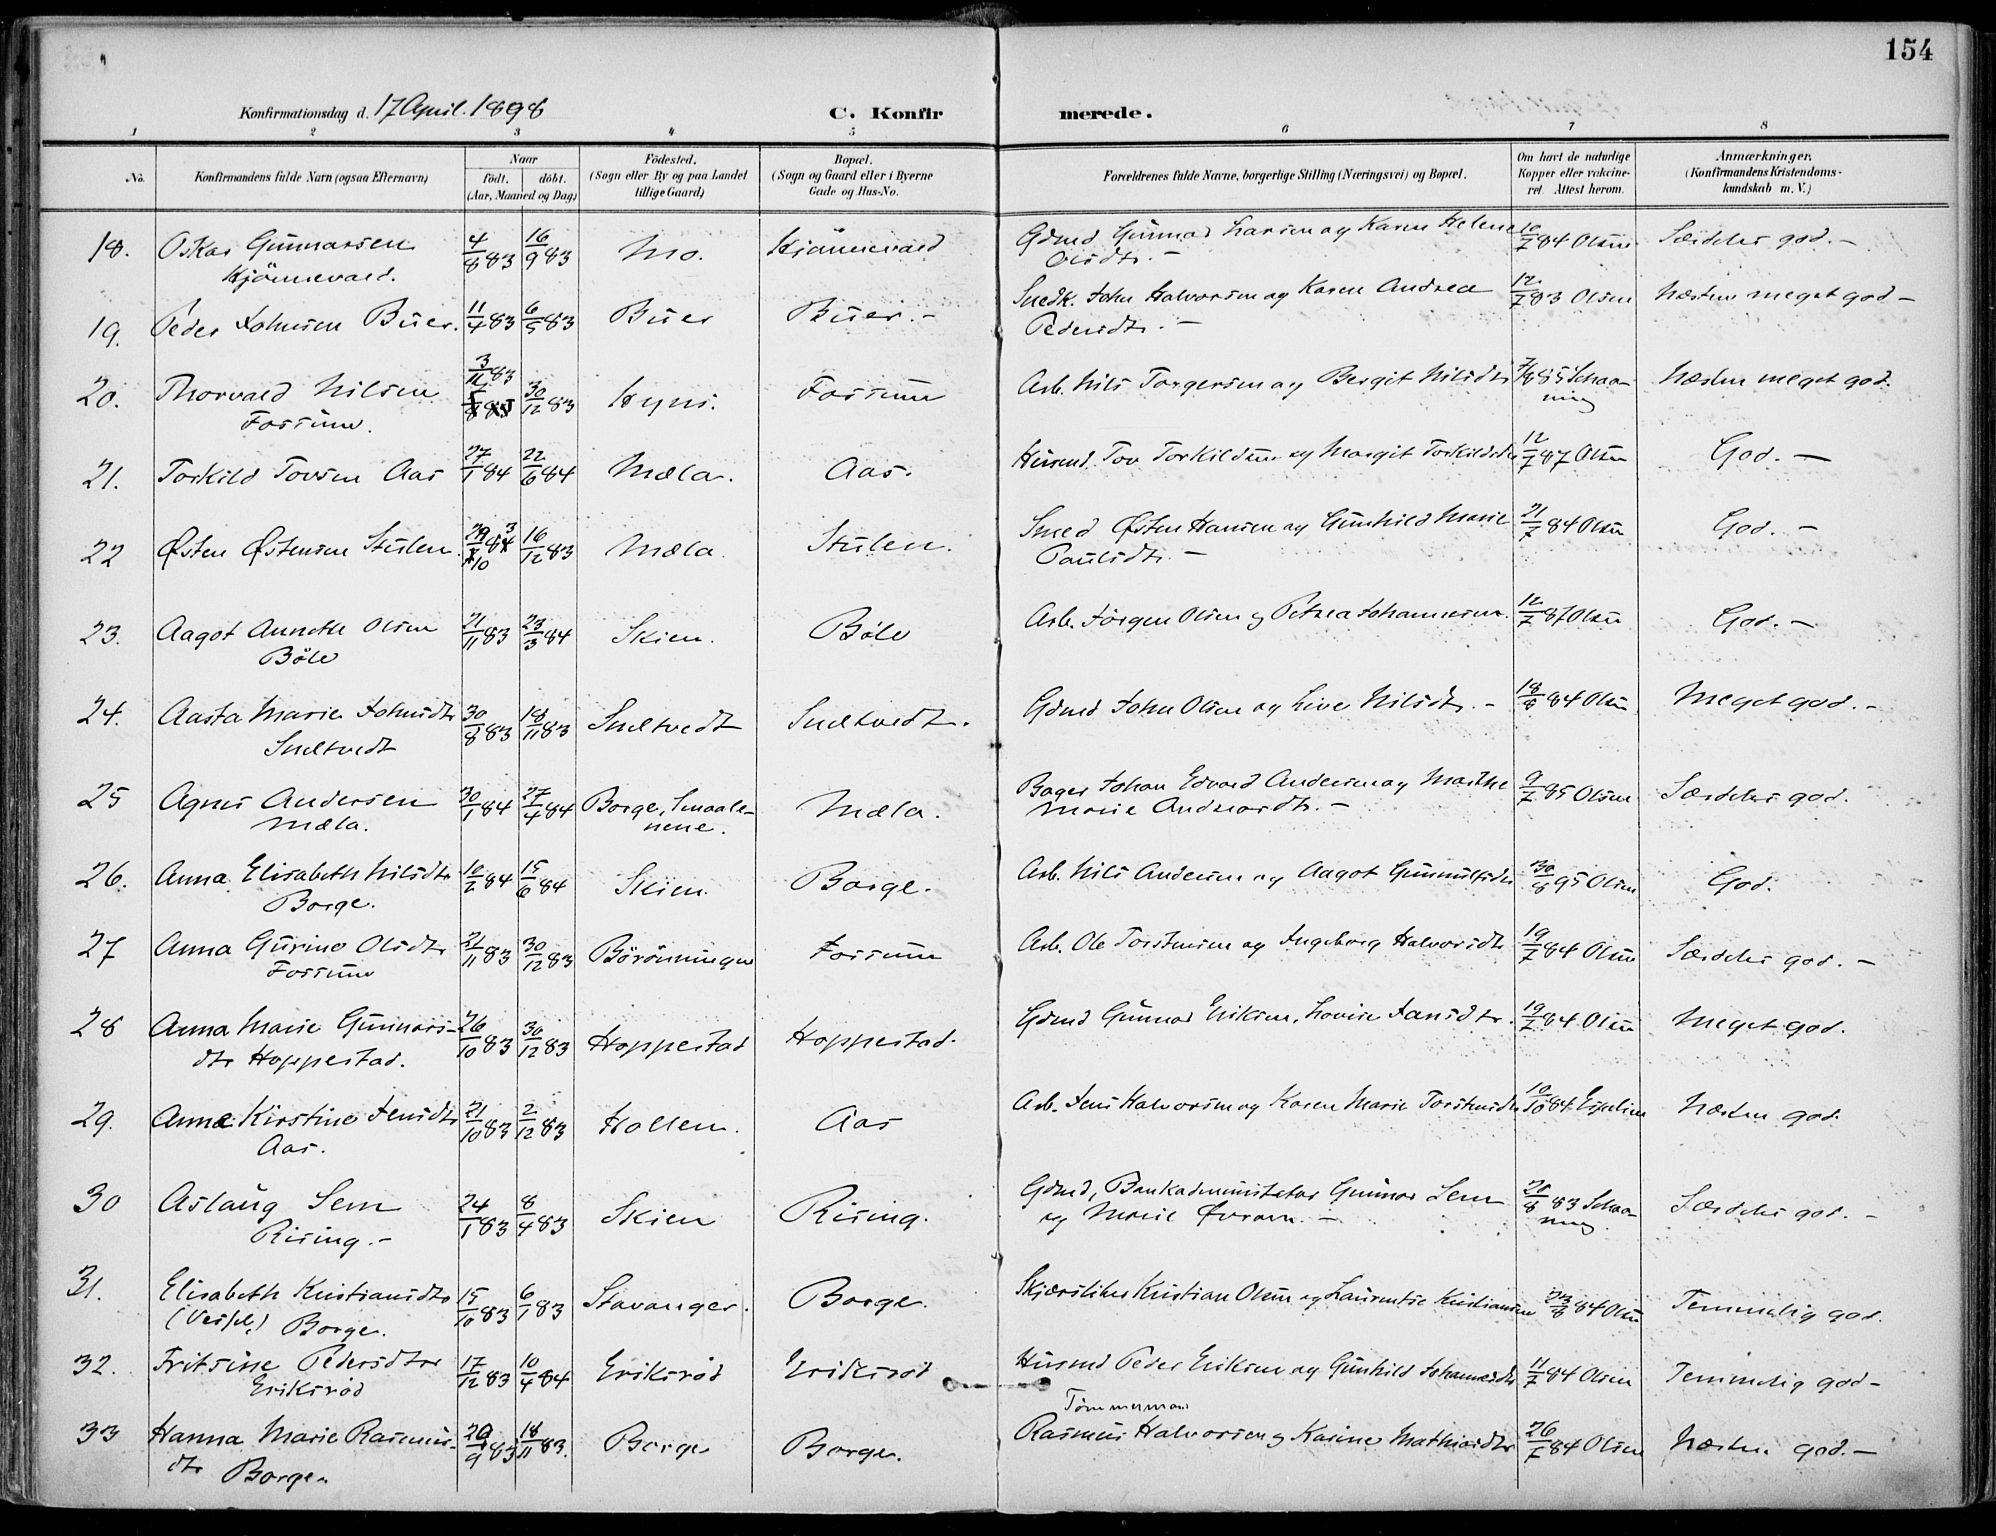 154
Konfirmationsdag d. 17 April. 1898
C. Konfirmerede.
1 2 3 4 5 6 7 8
No. Konfirmandens fulde Navn (ogsaa Efternavn) Naar født. døbt. (Aar, Maaned og Dag) Fødested. (Sogn eller By og paa Landet tillige Gaard) Bopæl. (Sogn og Gaard eller i Byerne Gade og Hus-No. Forældrenes fulde Navne, borgerlige Stilling (Næringsvei) og Bopæl. Om havt de naturlige Kopper eller vakcineret Attest herom. Anmærkninger. (Konfirmandens Kristendomskundskab m. V.)
18. Oskar Gunnarsen 4/8 83 16/9 83 Mo. Kjönnevald Gdmd Gunnar Larsen og Karen Helene 10/7 84 Olsen Særdeles god. -
Kjönnevald. Olsdtr. -
19. Peder Johnsen Buer. 11/4 83 6/5 83 Buer Buer. - Snedk. John Halvorsen og Karen Andrea 12/7 83 Olsen Næsten meget god -
Pedersdtr. -
20. Thorvald Nilsen 3/11 83 30/12 83 Hyni. Fossum Arb. Nils Torgersen og Bergit Nilsdtr 85 Schaaning Næsten meget god.
Fossum.
21. Torkild Tovsen Aas 27/1 84 22/6 84 Mæla. Aas. Husmd. Tov Torkildsen og Margit Torkildsdtr 12/7 87 Olsen God. -
22 Østen Østensen Stulen. 29/10 83 16/12 83 Mæla Stulen. Smed Østen Hansen og Gunhild Marie 21/7 84 Olsen God. -
Paulsdtr. -
23. Aagot Annethe Olsen 21/11 83 23/3 84 Skien. Böle Arb. Jörgen Olsen og Petrea Johannesen. 12/7 87 Olsen God. -
Böle
24. Aasta Marie Johnsdtr 30/8 83 18/11 83 Sneltvedt Sneltvedt. Gdmd John Olsen og Live Nilsdtr. - 18/8 84 Olsen Meget god. -
Sneltvedt
25 Agnes Andersen 30/1 84 27/4 84 Borge, Smaalenene. Mæla. Bager Johan Edvard Andersen og Marthe 9/7 85 Olsen Særdeles god.
Mæla. Marie Andreasdtr. -
26. Anna Elisabeth Nilsdtr 10/2 84 15/6 84 Skien Borge. Arb. Nils Andersen og Aagot Gunnulfsdtr 30/8 95 Olsen God.
Borge.
27 Anna Gurine Olsdtr 21/11 83 30/12 83 Börönningen Fossum Arb. Ole Torstensen og Ingeborg Halvorsdtr 19/7 84 Olsen Særdeles god. -
Fossum
28 Anna Marie Gunnars- 26/10 83 30/12 83 Hoppestad Hoppestad. Gdmd Gunnar Eriksen, Lovise Jansdtr. 19/7 84 Olsen Meget god.
dtr Hoppestad.
29. Anne Kirstine Jensdtr 21/10 83 2/12 83 Hollen. Aas Arb. Jens Halvorsen og Karen Marie Torstensdtr 10/10 84 Næsten god.
Aas.
30 Aslaug Sem 24/1 83 8/4 83 Skien Rising. Gdmd, Bankadministrator Gunnar Sem 83 Schaaning Særdeles god. -
Rising. - og Marie -
31. Elisabeth Kristiansdtr 15/10 83 6/1 83 Stavanger. Borge. Skjærsliber Kristian Olsen og Laurentse Kristiansen 23/8 84 Olsen Temmelig god.
Borge.
32. Fritsine Pedersdtr 17/12 83 10/4 84 Eriksrød Eriksrød Husmd Peder Eriksen og Gunhild Johannesdtr 11/7 84 Olsen Temmelig god -
Eriksrød
Tømmermand
33 Hanna Marie Rasmus- 20/9 83 18/11 83. Borge Borge. Rasmus Halvorsen og Karine Mathiasdtr 26/5 84 Olsen Næsten god. -
dtr Borge.